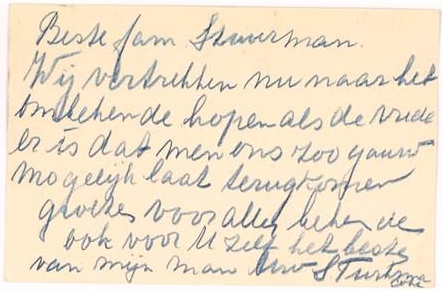 Beste fam Stuurman.
Wij vertrekken nu naar het
onbekende hopen als de vrede
er is dat men ons zoo gauw
mogelijk laat terugkomen
groetes voor alle bekende
ook voor U zelf het beste
van mijn man